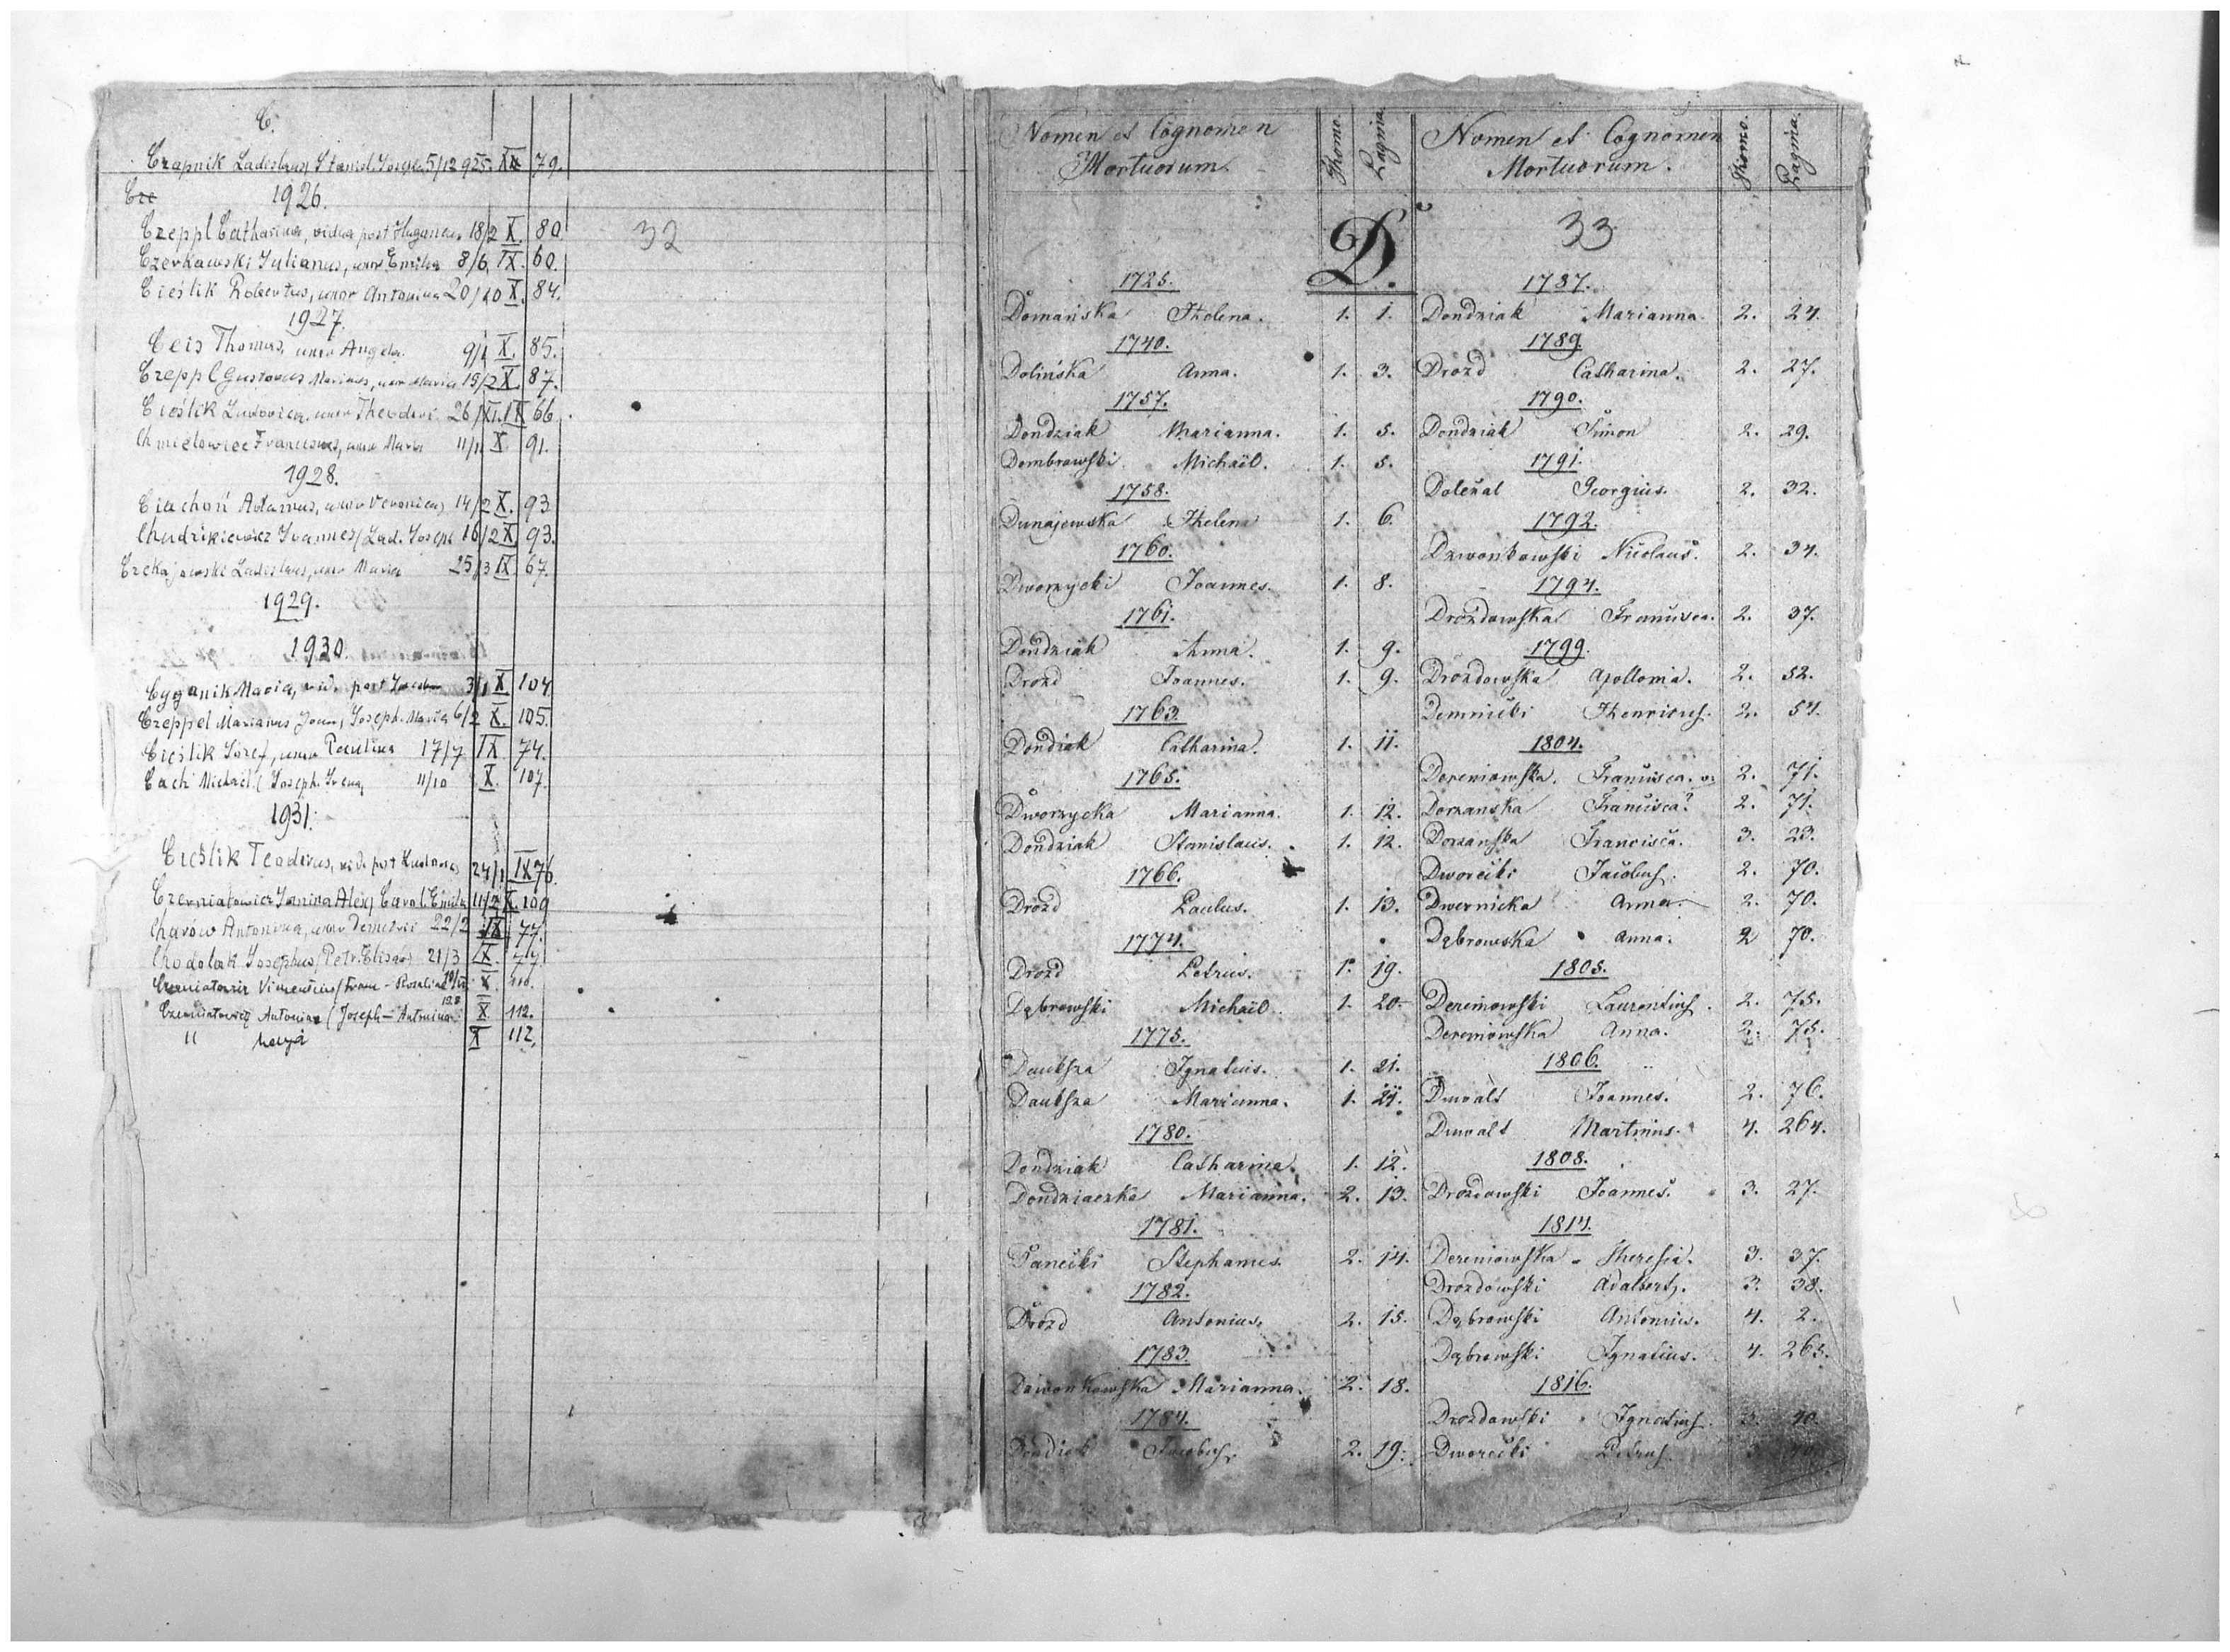 C.
Czapnik Ladeslaus Stanisl. Josepha 5/12 925. IX 79.
Cze
1926.
32
Czeppl Catharina, vidua post Hugonem 18/2 X. 80.
Czerkawski Julianus, uxor Emilia 8/6 IX. 60.
Cieślik Robertus, uxor Antonina 20/10 X. 84.
1927.
Ceis Thomas, uxor Angela 9/1 X. 85.
Czeppl Gustavus Marianus, uxor Maria 15/2 X. 87.
Cieślik Ludovica, uxor Theodori 26/XI. IX 66
Chmielowiec Franciscus, uxor Maria 11/11 X. 91.
1928.
Ciuchoń Adamus, uxor Veronica 14/2 X. 93
Chudzikiewicz Joannes/Lad. Joseph 16/2 X. 93.
Czekajowski Ladislaus, uxor Maria 25/3 IX. 67.
1929.
1930.
Cyganik Maria, vid. post 3/1 X 104.
Czeppel Marianus Joan, Joseph. Maria 6/2 X. 105.
Cieślik Józef, uxor Paulina 17/7 IX 74.
Cach Michaël (Joseph. Irena 11/10 X. 107.
1931.
Cieślik Teodorus, vid. post 24/1 IX 76.
Czerniatowicz Janina Alex/Carol. Emilia 11/2 X. 109
Charów Antonina, uxor Demetrii 22/2 IX 77.
Chodolak Josephus/Petr. Elisab 21/3 IX. 77
Czerniatowicz Vincentius/Fran - Rosalia X. 110.
Czerniatowicz Antonina (Joseph - Antonina 19.8 X 112.
11 Marja X 112.
Nomen et Cognomen Mortuorum. Thomo. Pagina.
D.
1725.
Domańska Helena. 1. 1.
1740.
Dolińska Anna. 1. 3.
1757.
Dondziak Marianna. 1. 5.
Dombrowski Michaël. 1. 5.
1758.
Dunajewska Helena 1. 6.
1760.
Dworzycki Joannes. 1. 8.
1761.
Dondziak Anna. 1. 9.
Drozd Joannes. 1. 9.
1763.
Dondziak Catharina. 1. 11.
1765.
Dworzycka Marianna. 1. 12.
Dondziak Stanislaus. 1. 12.
1766.
Drozd Paulus. 1. 13.
1774.
Drozd Petrus. 1. 19.
Dąbrowski Michaël. 1. 20.
1775.
Dauksza Ignatius. 1. 21.
Dauksza Marianna. 1. 21.
1780.
Dondziak Catharina. 1. 12.
Dondziaczka Marianna. 2. 13.
1781.
Danecki Stephanus 2. 14.
1782.
Drozd Antonius. 2. 15.
1783.
Dzwonkowska Marianna. 2. 18.
1784.
Dondiak Jacobus. 2. 19.
Nomen et Cognomen Mortuorum. Thomo. Pagina.
33
1787.
Dondziak Marianna. 2. 24.
1789.
Drozd Catharina. 2. 27.
1790.
Dondziak Simon 2. 29.
1791.
Doležal Georgius. 2. 32.
1792.
Dzwonkowski Nicolaus. 2. 34.
1794.
Drozdowska Francisca. 2. 37.
1799.
Drozdowska Apollonia. 2. 52.
Demnicki Henricus. 2. 54.
1804.
Dereniowska. Francisca. 2. 71.
Dorzanska Francisca? 2. 71.
Dorzanska Francisca. 3. 23.
Dworecki Jacobus. 2. 70.
Dwernicka Anna. 2. 70.
Dąbrowska Anna. 2 70.
1805.
Dereniowski Laurentius. 2. 75.
Dereniowska Anna. 2. 75.
1806.
Duwalt Joannes. 2. 76.
Duwalt Martinus. 4. 264.
1808.
Drozdowski Joannes. 3. 27.
1814.
Dereniowska Theresia. 3. 37.
Drozdowski Adalbert. 3. 38.
Dąbrowski Antonius. 4. 2.
Dąbrowski Ignatius. 4. 263.
1816.
Drozdowski Ignatius. 3. 40.
Dworecki Petrus. 3.